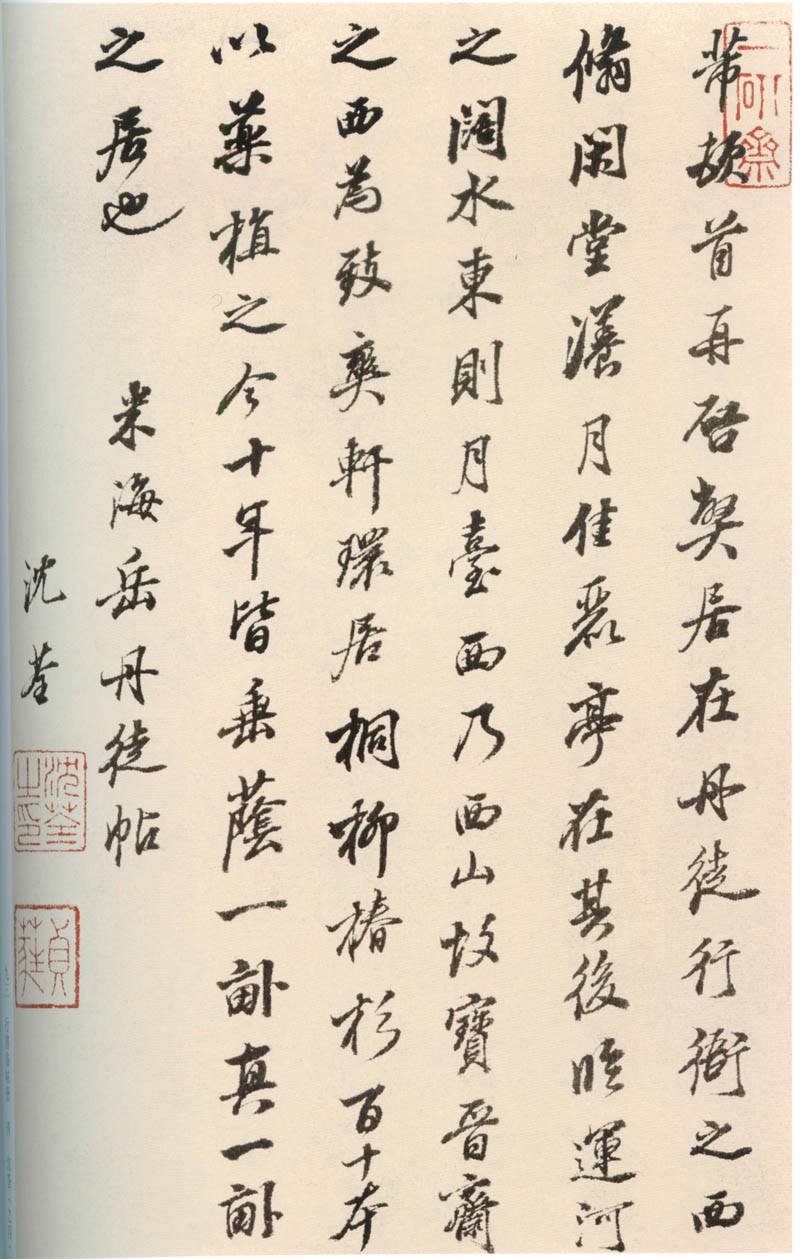 芾頓首再啓弊居在丹徒行衙之西
翛閑堂漾月佳麗亭在其後臨運河
之闊水東則月臺西乃西山故寶晉齋
之西為致爽軒環居桐柳椿杉百十本
以藥植之今十年皆垂蔭一畝真一畝
之居也
米海岳丹徒帖
沈荃
一研齋
沈荃之印